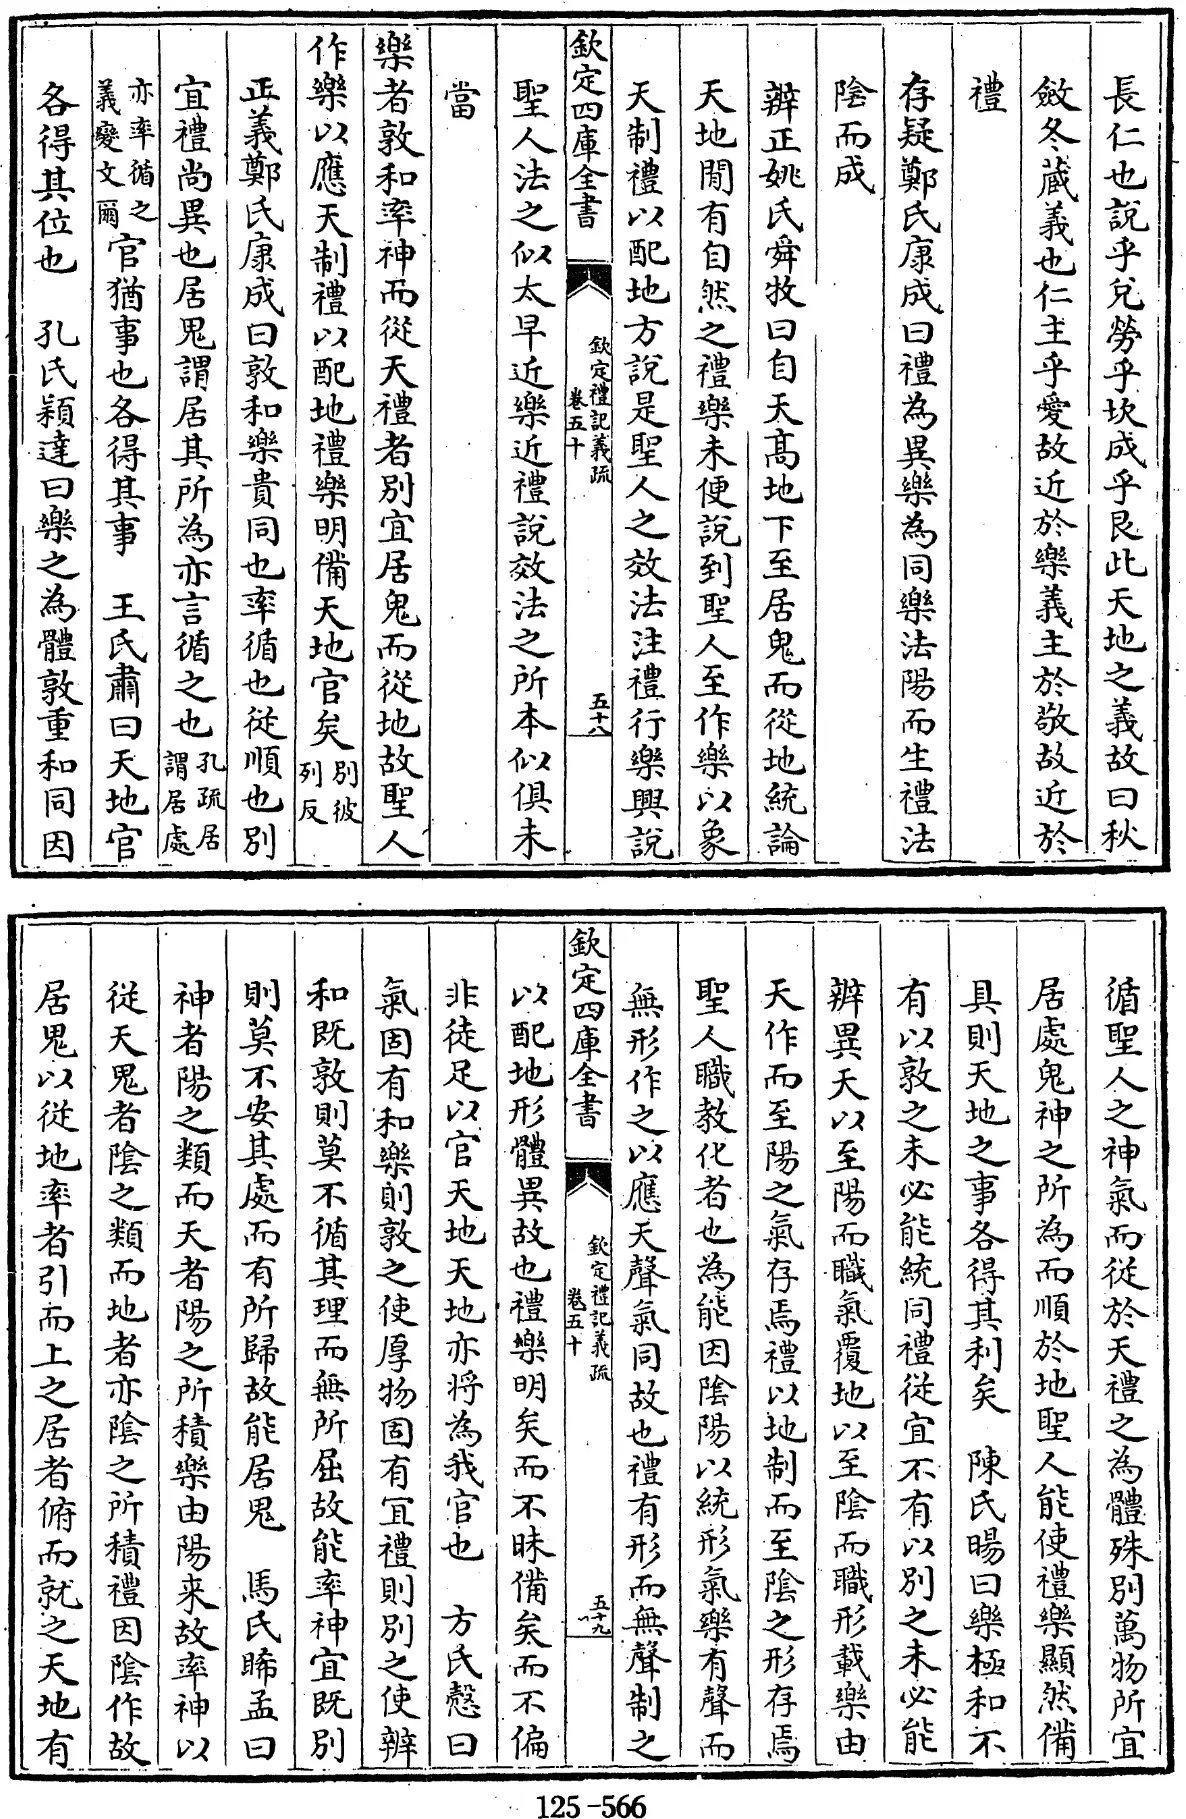 長仁也說乎兌勞乎坎成乎艮此天地之義故曰秋
斂冬蔵義也仁主乎愛故近於樂義主於敬故近於
禮
存疑鄭氏康成曰禮為異樂為同樂法陽而生禮法
陰而成
辨正姚氏舜牧曰自天髙地下至居鬼而從地統論
天地閒有自然之禮樂未便說到聖人至作樂以象
天制禮以配地方說是聖人之效法注禮行樂興說
欽定四庫全書
欽定禮記義疏
卷五十
五十八
聖人法之似太早近樂近禮說效法之所本似俱未
當
樂者敦和率神而從天禮者別宜居鬼而從地故聖人
作樂以應天制禮以配地禮樂明備天地官矣別彼
列反
正義鄭氏康成曰敦和樂貴同也率循也從順也別
宜禮尚異也居鬼謂居其所為亦言循之也孔疏居
謂居處
亦率循之
義變文爾官猶事也各得其事 王氏肅曰天地官
各得其位也 孔氏穎達曰樂之為體敦重和同因
循聖人之神氣而從於天禮之為體殊別萬物所宜
居處鬼神之所為而順於地聖人能使禮樂顯然備
具則天地之事各得其利矣 陳氏暘曰樂極和不
有以敦之未必能統同禮從宜不有以別之未必能
辨異天以至陽而職氣覆地以至陰而職形載樂由
天作而至陽之氣存焉禮以地制而至陰之形存焉
聖人職教化者也為能因陰陽以統形氣樂有聲而
無形作之以應天聲氣同故也禮有形而無聲制之
欽定四庫全書
欽定禮記義疏
卷五十
五十九
以配地形體異故也禮樂明矣而不昧備矣而不偏
非徒足以官天地天地亦將為我官也 方氏慤曰
氣固有和樂則敦之使厚物固有宜禮則別之使辨
和既敦則莫不循其理而無所屈故能率神宜既別
則莫不安其處而有所歸故能居鬼 馬氏睎孟曰
神者陽之類而天者陽之所積樂由陽来故率神以
從天鬼者陰之類而地者亦陰之所積禮因陰作故
居鬼以從地率者引而上之居者俯而就之天地有
125-566